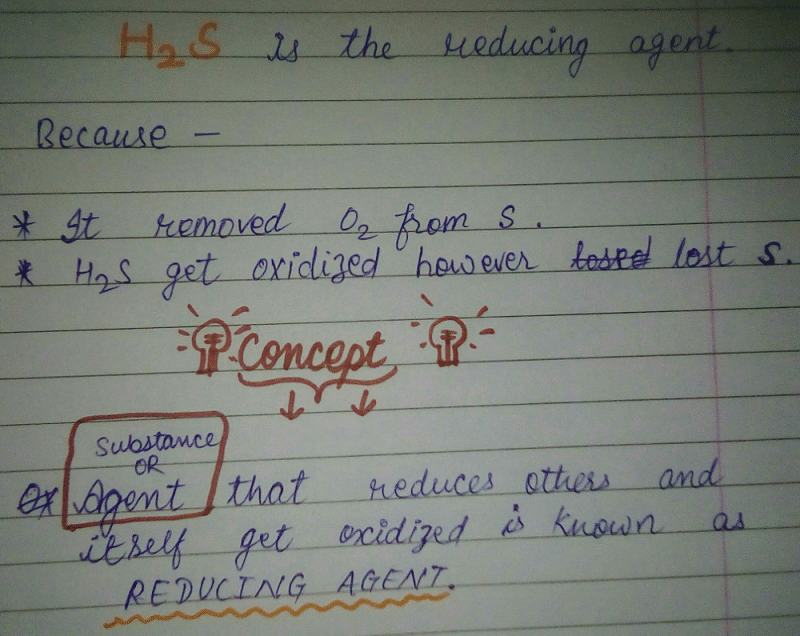 H2S is the reducing agent.
Because —
* It removed O2 from S.
* H2S get oxidized however losed lost S.
Concept
Substance
OR
Agent that reduces others and
itself get oxidized is known as
REDUCING AGENT.